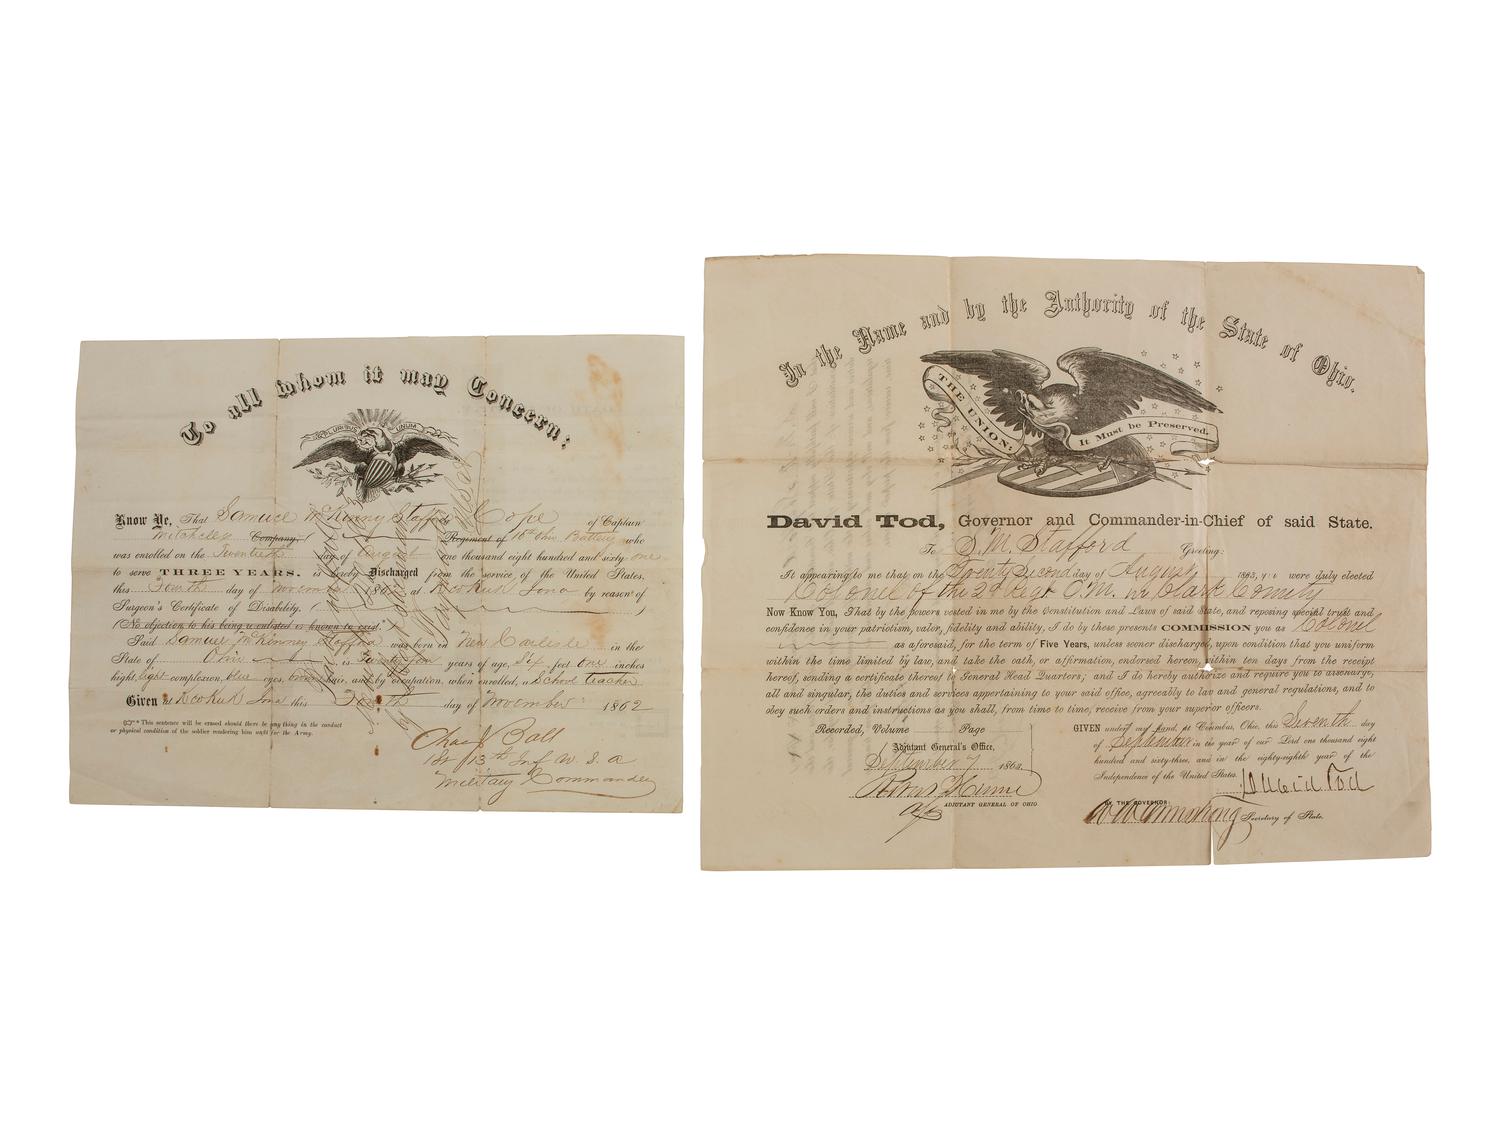 To all whom it may Concern:
E PLURIBUS UNUM
Know Ye, That Samuel McKinny Stafford Corpl of Captain
Mitchels Company, ( ) Regiment of 16th Ohio Battery who
was enrolled on the Twentieth day of August one thousand eight hundred and sixty-one
to serve THREE YEARS, is hereby Discharged from the service of the United States,
this Fourth day of November 1862 at Keokuk Iowa by reason of
Surgeon's Certificate of Disability. ( )
(No objection to his being re-enlisted is known to exist.*)
Said Samuel McKinney Stafford was born in New Carlisle in the
State of Ohio is Twenty four years of age, Six feet one inches
hight, light complexion, blue eyes, brown hair, and by occupation, when enrolled, a School teacher
Given at Keokuk Iowa this Fourth day of November 1862
* This sentence will be erased should there be anything in the conduct
or physical condition of the soldier rendering him unfit for the Army.
Chas J Ball
13th Inf U. S. A
Military Commander
In the Name and by the Authority of the State of Ohio.
THE UNION: It Must be Preserved.
David Tod, Governor and Commander-in-Chief of said State.
To S. M. Stafford Greeting:
It appearing to me that on the Twenty Second day of August 1863, you were duly elected
Colonel of the 2d Regt O. M. in Clark County
Now Know You, That by the powers vested in me by the Constitution and Laws of said State, and reposing special trust and
confidence in your patriotism, valor, fidelity and ability, I do by these presents COMMISSION you as Colonel
as aforesaid, for the term of Five Years, unless sooner discharged, upon condition that you uniform
within the time limited by law, and take the oath, or affirmation, endorsed hereon, within ten days from the receipt
hereof, sending a certificate thereof to General Head Quarters; and I do hereby authorize and require you to discharge,
all and singular, the duties and services appertaining to your said office, agreeably to law and general regulations, and to
obey such orders and instructions as you shall, from time to time, receive from your superior officers.
Recorded, Volume Page
Adjutant General's Office,
September 7 1863.
ADJUTANT GENERAL OF OHIO
GIVEN under my hand, at Columbus, Ohio, this Seventh day
of September in the year of our Lord one thousand eight
hundred and sixty-three, and in the eighty-eighth year of the
Independence of the United States.
David Tod
BY THE GOVERNOR:
W W Armstrong Secretary of State.